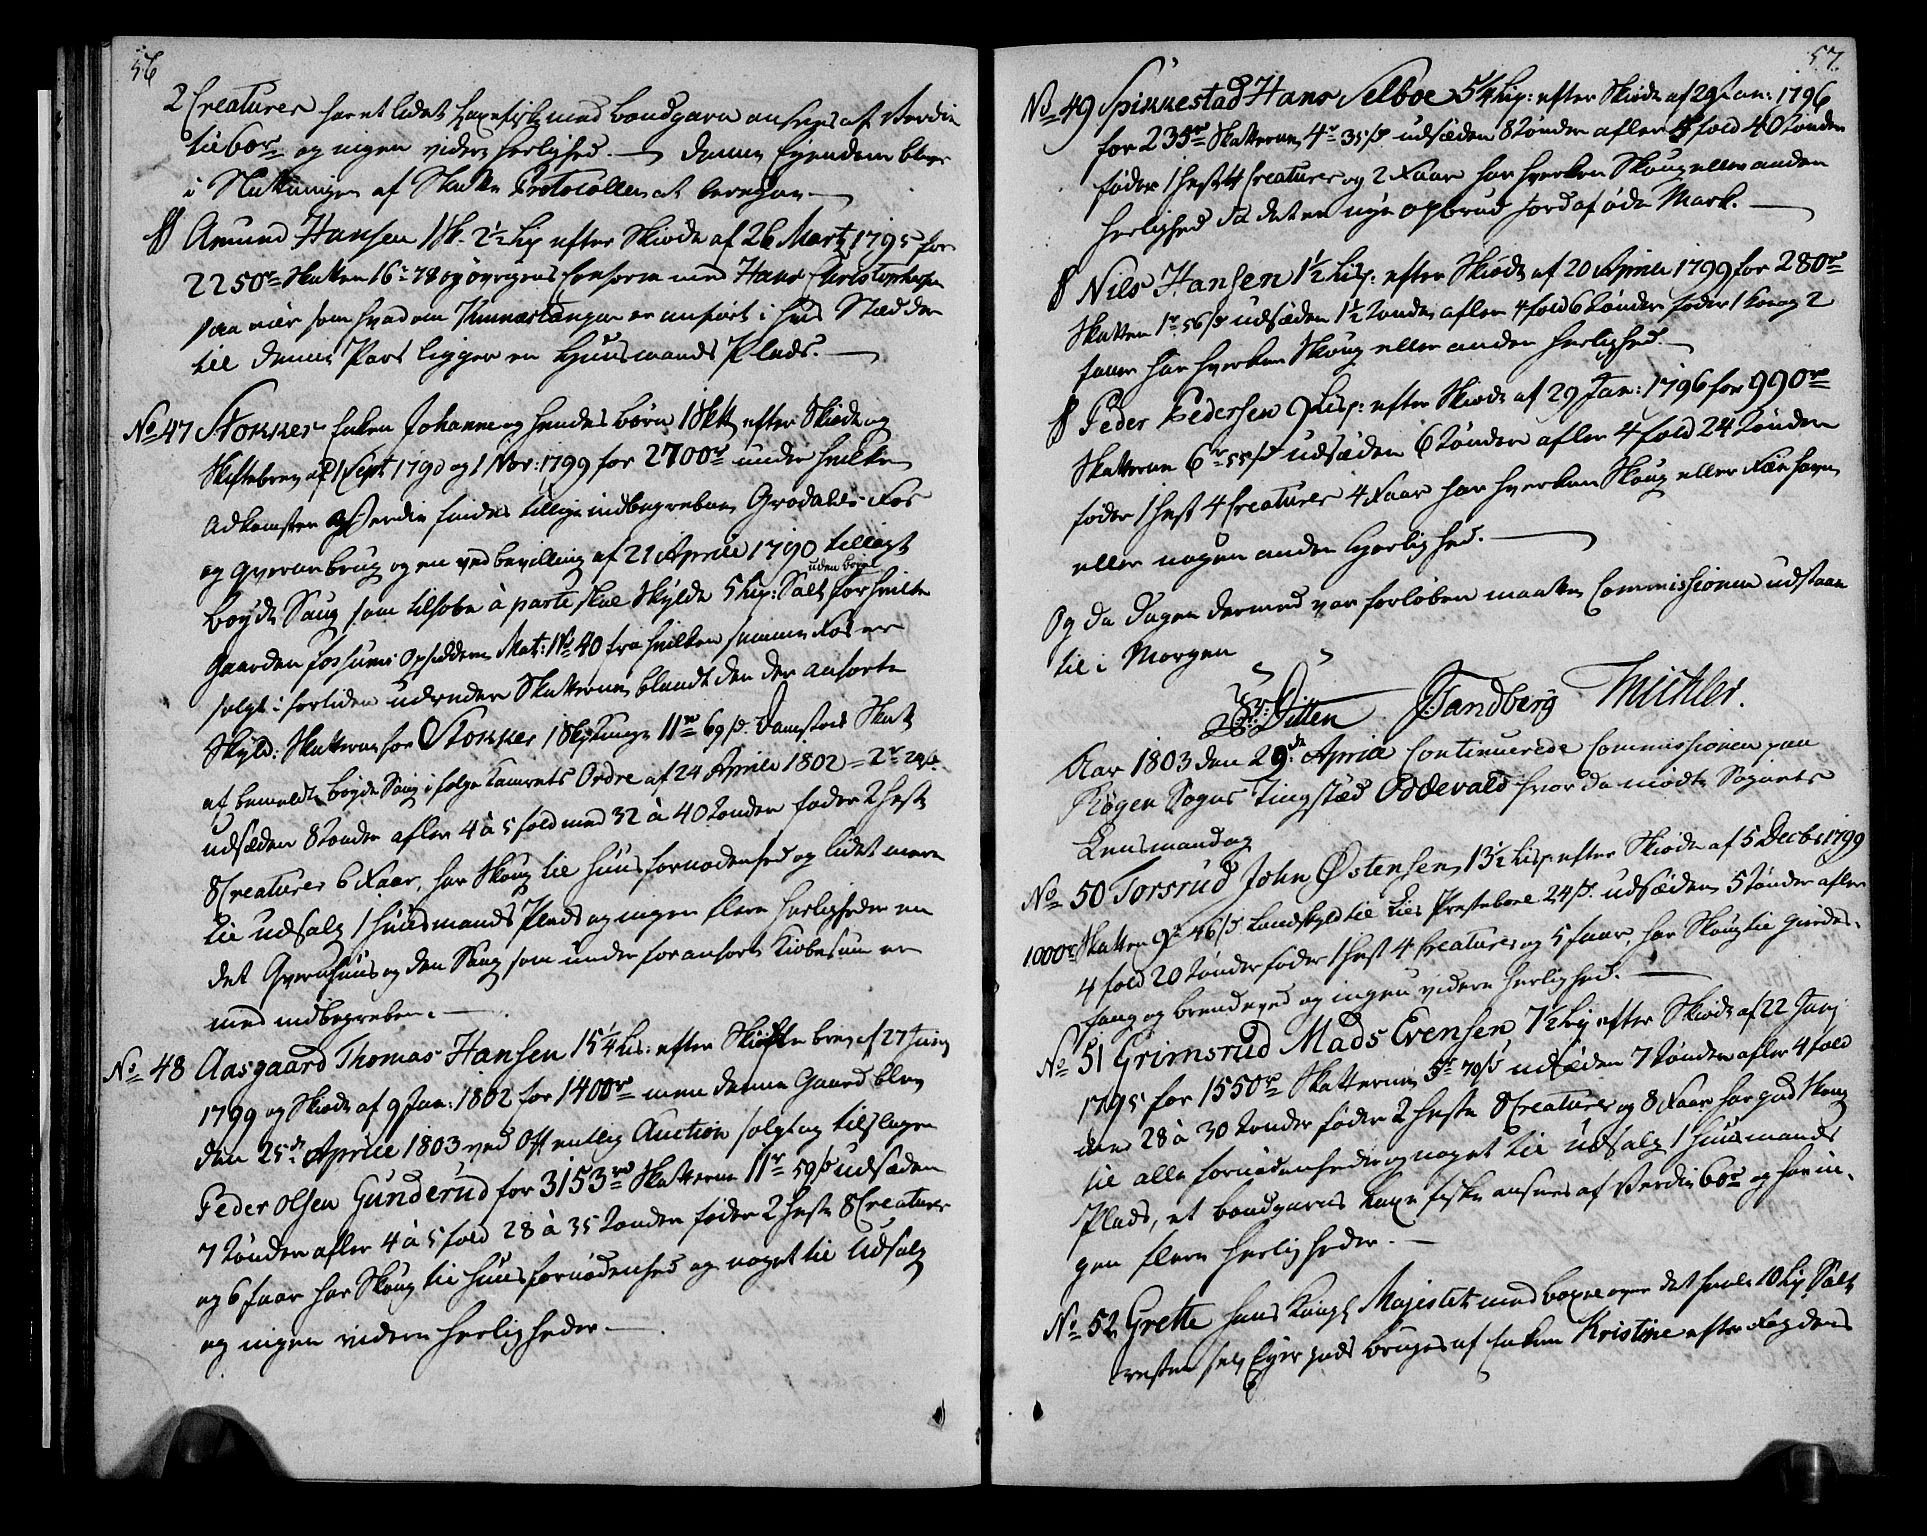 56
2 Creaturer har et lidet Laxefiskeri med bondgarn ansees af Verdie
til 60 r og ingen videre herlighed. — denne Eiendom blev
i Slutningen af Skatte Protocollen at beregne —
§ Amund Hansen 1 Sk. 2½ Lip efter Skiøde af 26 Martz 1795 for
2250 r Skatten 16 r 78 og øvrigens Conform med Hans Christophersen
saa vær som hvad om Kinnartangen er anført i hus Stædder
til denne Part ligger en Huusmands Plads. —
No 47 Stokker Enken Johanne og hendes børn 1 Sk efter Skiøde og
Skiftebrev af 1 Sept 1790 og 1 Nov: 1799 for 2700 r under hvilken
Adkomster og Verdie findes tillige indbegreben Grodalds Fos
og Qverne brug og en ved bevilling af 21 Aprile 1790 tillagt
uden bøxel
bøyde Saug som tilforn à parte skal Skylde 5 Lip: Salt for hvilke
Gaarden Fossums Opsiddere Mat: No 40 fra hvilken samme Fos er
solgt i fortiden udreder Skatterne blandt den der anførte
Skyld: Skatterne for Stokker 1 Sk Tunge 11 r 69 s. Damstok Skat
af bemeldte bøyde Saug i følge Camrets Ordre af 24 Aprile 1802 = 2 r 24 s.
udsæden 8 tønder afler 4 à 5 fold med 32 à 40 tønder føder 2 heste
8 Creaturer 6 Faar, har Skoug til huus fornødenhed og lidet mere
til udsalg 1 huusmands Plads og ingen flere herligheder end
det Qvernhuus og den Saug som under foranførte Kiøbesum er
med indbegreben. —
No 48 Aasgaard Thomas Hansen 15¼ Lis: efter Skiøfte brev af 27 Junij
1799 og Skiøde af 9 Jan: 1802 for 1400 r men denne Gaard blev
den 25de Aprile 1803 ved Offentlig Auction solgt og tilslagen
Peder Olsen Gunderud for 3153 r Skatterne 11 r 59 s udsæden
7 tønder afler 4 à 5 fold 28 à 35 tønder føder 2 heste 8 Creaturer
og 6 faar har Skoug til huus fornødenhed og noget til Udsalg
og ingen videre herligheder —
57.
No 49 Spikkestad Hans Selboe 5¼ Lip: efter Skiøde af 29 Jan: 1796
for 235 r Skatterne 4 r 35 s udsæden 8 tønder afler 5 fold 40 tønder
føder 1 hest 4 Creaturer og 2 Faar har hverken Skoug eller anden
herlighed da det er nye opbrud Jord af øde Mark. —
§ Nils Hansen 1½ Lisp. efter Skiøde af 20 Aprile 1799 for 280 r
Skatten 1 r 56 s udsæden 1½ tønde afler 4 fold 6 tønder føder 1 Koe og 2
faar har hverken Skoug eller anden herlighed. —
§ Peder Pedersen 9 Lisp: efter Skiøde af 29 Jan: 1796 for 990 r
Skatterne 6 r 55 s udsæden 6 tønder afler 4 fold 24 tønder
føder 1 hest 4 Creaturer 4 Faar har hverken Skoug eller Fæe havn
eller nogen anden herlighed. —
Og da Dagen dermed var forløben maatte Commissionen udstaae
til i Morgen
Ditten Tandberg Michler.
Aar 1803 den 29de Aprile Continuerede Commissionen paa
Røgen Sogns Tingstæd Oddevald hvor da mødte Sognets
Lensmand og
No 50 Torsrud John Østensen 13½ Lisp. efter Skiøde af 5 Decbr 1799
1000 r Skatten 9 r 46 s Landskyld til Lier Prestebole 24 s. udsæden 5 tønder afler
4 fold 20 tønder føder 1 hest 4 Creaturer og 5 faar, har Skoug til gierdes-
fang og brendeved og ingen videre herlighed. —
No 51 Grimsrud Mads Evensen 7½ Lip efter Skiøde af 22 Junj
1795 for 1550 r Skatterne 5 r 70 s udsæden 7 tønder afler 4 fold
den 28 à 30 tønder føder 2 heste 8 Creaturer og 8 Faar har god Skoug
til alle fornødenheder og noget til Udsalg 1 huusmands
Plads, et bondgarns Laxe fiske ansees af Verdie 60 r og har in-
gen flere herligheder. —
No 52 Grette hans Kongl Majestet med bøxel over det heele 10 Lip Salt
resten selv Eyer gods bruges af Enken Kristine efter Fogdens